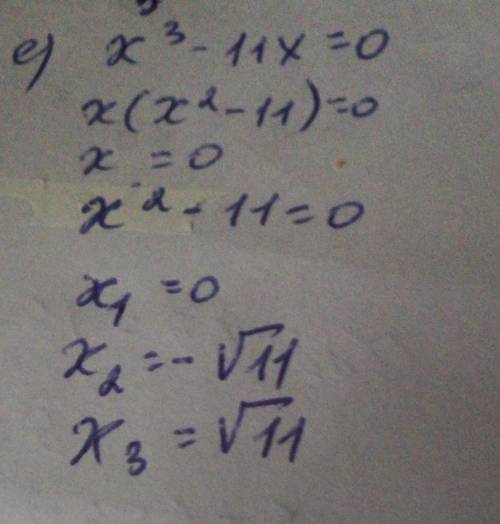 е) x³ - 11x = 0
x(x² - 11) = 0
x = 0
x² - 11 = 0
x₁ = 0
x₂ = - √11
x₃ = √11